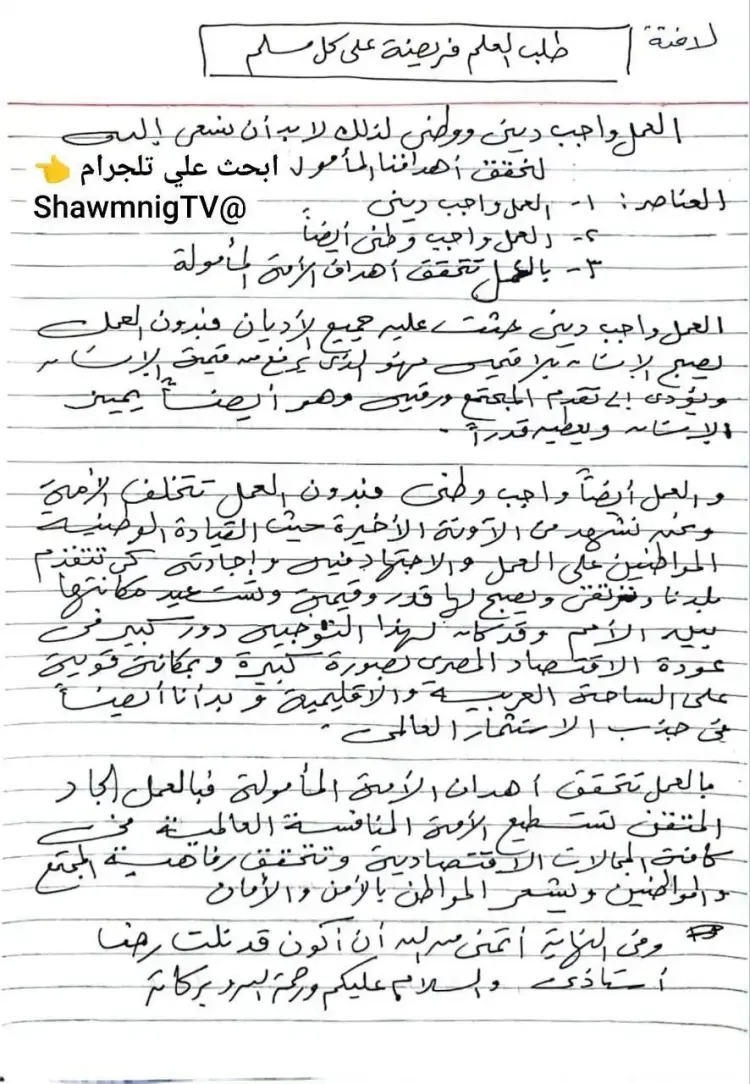 لافتة | طلب العلم فريضة على كل مسلم
العمل واجب دينى ووطنى لذلك لا بد أن نسعى إليه
لتحقق أهدافنا المأمولة ابحث علي تلجرام 👈
@ShawmnigTV
العناصر: ١- العمل واجب دينى
٢- العمل واجب وطنى أيضاً
٣- بالعمل تتحقق أهداف الأمة المأمولة
العمل واجب دينى حثت عليه جميع الأديان فبدون العمل
يصبح الإنسان بلا قيمة فهو الذى يرفع من قيمة الإنسان
ويؤدى إلى تقدم المجتمع ورقيه وهو أيضاً يميز
الإنسان ويعطيه قدراً.
والعمل أيضاً واجب وطنى فبدون العمل تتخلف الأمة
ونحن نشهد من الآونة الأخيرة حيث القيادة الوطنية
المواطنين على العمل والاجتهاد فيه وإجادته كى تتقدم
بلدنا وترتقى ويصبح لها قدر وقيمة وتستعيد مكانتها
بين الأمم وقد كان لهذا التوجيه دور كبير فى
عودة الاقتصاد المصرى بصورة كبيرة وبمكانة قوية
على الساحة العربية والاقليمية وبدأنا أيضاً
فى جذب الاستثمار العالمى.
بالعمل تتحقق أهداف الأمة المأمولة فبالعمل الجاد
المتقن تستطيع الأمة المنافسة العالمية فى
كافة المجالات الاقتصادية وتتحقق رفاهية المجتمع
والمواطنين ويشعر المواطن بالأمن والأمان
وفى النهاية أتمنى من الله أن أكون قد نلت رضا
أستاذى والسلام عليكم ورحمة الله وبركاته